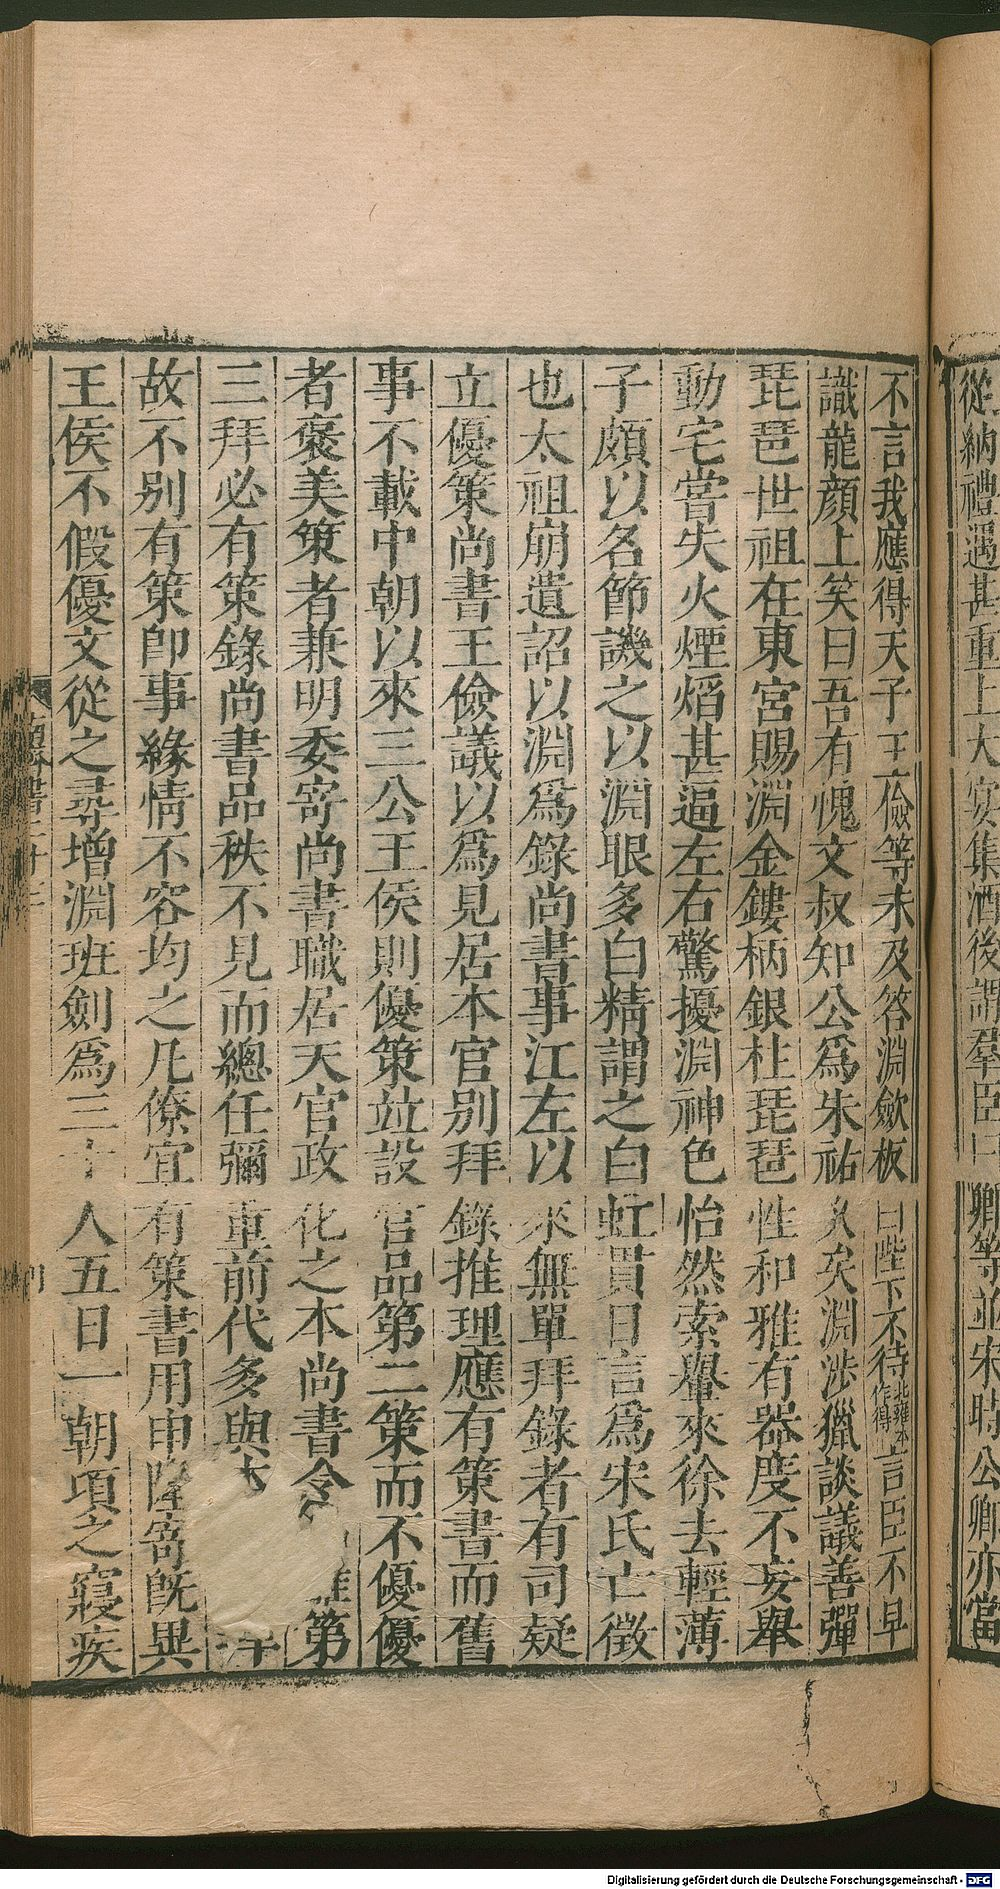 從納禮遇甚重上大宴集酒後謂羣臣曰卿等並宋時公卿亦當
不言我應得天子王儉等未及答淵歛板曰陛下不待北雍本作得言臣不早
識龍顏上笑曰吾有愧文叔知公爲朱祐久矣淵涉獵談議善彈
琵琶世祖在東宮賜淵金鏤柄銀柱琵琶性和雅有器度不妄舉
動宅嘗失火煙熖甚逼左右驚擾淵神色怡然索轝來徐去輕薄
子頗以名節譏之以淵眼多白精謂之白虹貫日言爲宋氏亡徵
也太祖崩遺詔以淵爲錄尚書事江左以來無單拜錄者有司疑
立優策尚書王儉議以爲見居本官别拜錄推理應有策書而舊
事不載中朝以來三公王侯則優策竝設官品第二策而不優優
者褒美策者兼明委寄尚書職居天官政化之本尚書令雖第
三拜必有策錄尚書品秩不見而總任彌重前代多與
故不别有策卽事緣情不容均之凡僚宜有策書用申隆寄旣異
王侯不假優文從之尋增淵班劍爲三十人五日一朝頃之寢疾